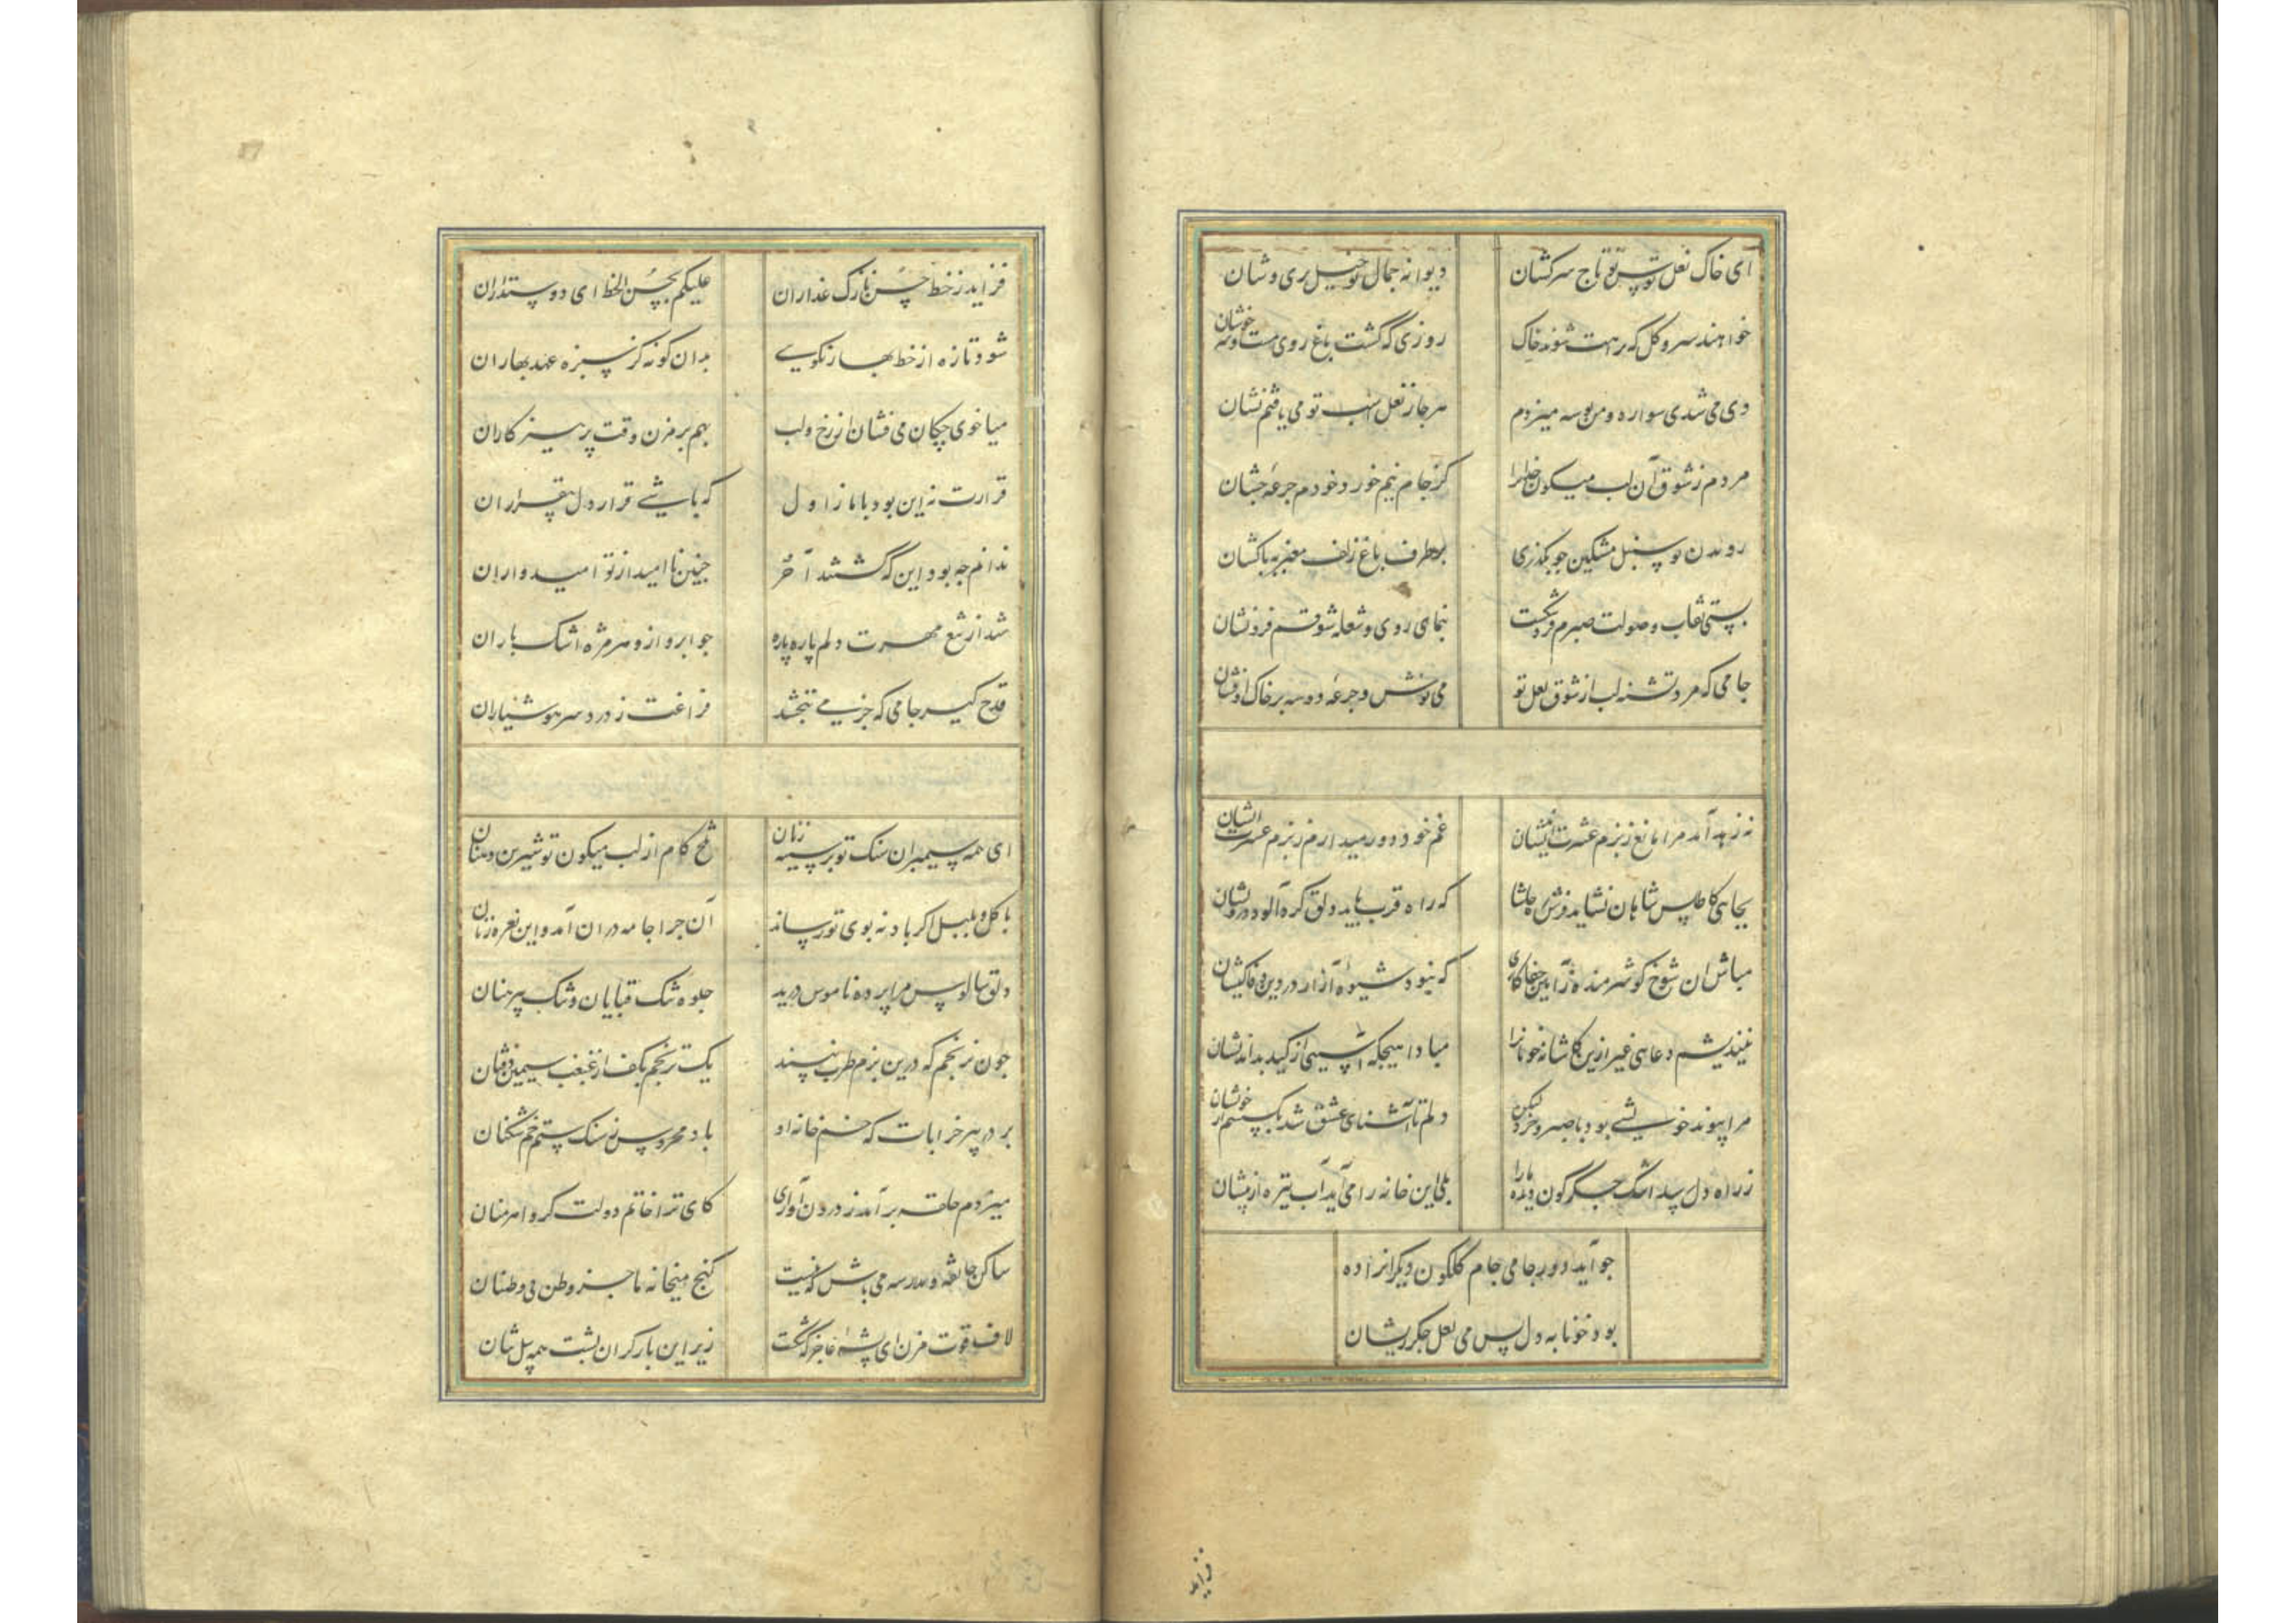 ای خاک نعل توسن تو تاج سرکشان دیوانه جمال تو خیل پری وشان
خواهند سرو و گل که براهت شوند خاک روزی که گشت باغ روی مست و سرخوشان
دی می شدی سواره و من بوسه میزدم هر جا ز نعل اسب تو می یافتم نشان
مردم ز شوق آن لب میگون خدایرا کز جام نیم خورد خودم جرعه چشان
روبد ز تو سنبل مشکین چو بگذری بر طرف باغ زلف معنبر بپاکشان
بستی نقاب و صولت صبرم فرو شکست بنمای روی و شعله شوقم فرو نشان
جامی که مرد تشنه لب از شوق لعل تو می نوش و جرعه دو سه بر خاک او فشان
نه زهد آمد مرا مانع ز بزم عشرت اندیشان غم خود دور میدارم ز بزم عشرت ایشان
بجایی کاطلس شاهان نشاید فرش ره حاشا که راه قرب یابد دلق گرد آلود درویشان
مباش ان شوخ گو شرمنده ز آیین جفا کاری که نبود شیوه آزار در دین وفا کیشان
نیندیشم دعایی غیر ازین کاشانه خوبانرا مبادا هیچگه آسیبی از کید بد اندیشان
مرا پیوند خویشی بود با صبر و خرد لیکن دلم تا آشنای عشق شد بگسستم از خویشان
ز راه دل رسد اشک جگرگون دیده ما را بلی این خانه را می آید آب تیره از پیشان
چو آید دور جامی جام گلگون دیگرانرا ده
بود خونابه دل پس می لعل جگرریشان
فزاید
فزاید ز خط حسن نازک عذاران علیکم بحسن الخط ای دوستداران
شود تازه از خط بهار نکویی بدان گونه کز سبزه عهد بهاران
میا خوی چکان می فشان از رخ و لب بهم بر مزن وقت پرهیز کاران
قرارت نه این بود با ما ز اول که باشی قرار دل بیقراران
ندانم چه بود این که گشتند آخر چنین نا امید از تو امیدواران
شد از تیغ مهرت دلم پاره پاره چو ابر و ازو هر مژه اشک باران
قدح گیر جامی که جز می نبخشد فراغت ز درد سر هوشیاران
ای همه سیمبران سنگ تو بر سینه زنان تلخ کام از لب میگون تو شیرین دهنان
با گل و بلبل اگر باد نه بوی تو رساند آن چرا جامه دران آمد و این نعره زنان
دلق سالوس مرا پرده ناموس درید جلوه تنگ قبایان و تنک پیرهنان
چون نرنجم که درین بزم طرب نپسند یک ترنجم بکف از غبغب سیمین ذقنان
بر در پیر خرابات که خم خانه او باد محروس ز سنگ ستم خم شکنان
میزدم حلقه بر آمد ز درون آوازی کای ترا خاتم دولت گرو اهرمنان
ساکن خانقه و مدرسه می باش که نیست کنج میخانه ما جز وطن بی وطنان
لاف قوت مزن ای پشه عاجز که شکست زیر این بار گران پشت همه پیل تنان